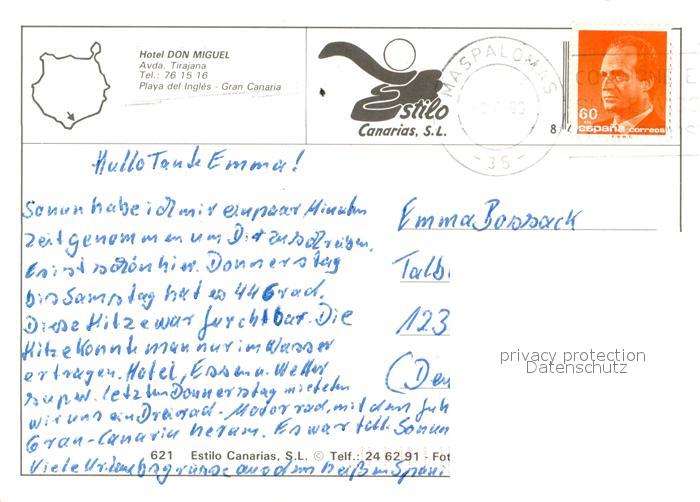 Hotel DON MIGUEL
Avda. Tirajana
Tel.: 76 15 16
Playa del Inglés - Gran Canaria
Estilo
Canarias, S.L.
MASPALOMAS
- 35 -
60
españa correos
8/
Hallo Tante Emma!
So nun habe ich mir ein paar Minuten
Zeit genommen um Dir zu schreiben.
Es ist schön hier. Donnerstag
bis Samstag hat es 44 Grad.
Diese Hitze war furchtbar. Die
Hitze konnte man nur im Wasser
ertragen. Hotel, Essen, Wetter
super. letzten Donnerstag mieteten
wir uns ein Dreirad-Motorrad, mit dem
Gran-Canaria herum. Es war toll.
Viele Urlaubsgrüsse aus dem heißen Spani
Emma Bossack
Talb
123
(Den
privacy protection
Datenschutz
621 Estilo Canarias, S.L. © Telf.: 24 62 91 - Fot